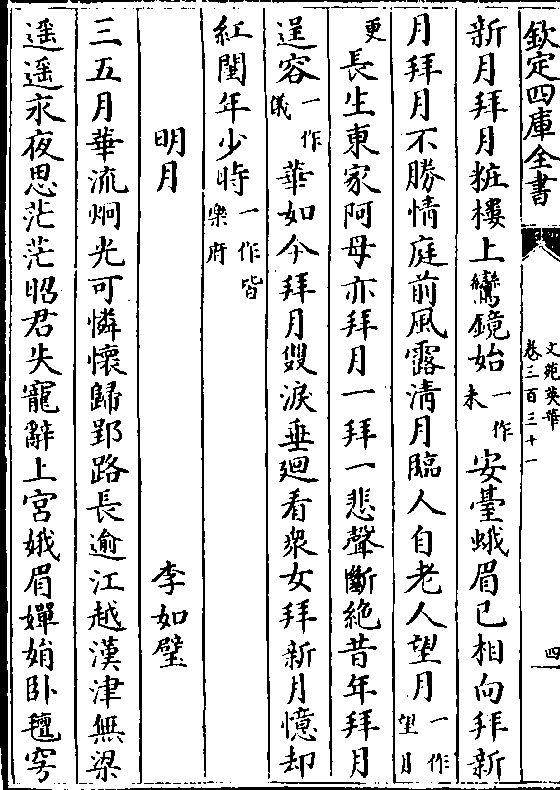 欽定四庫全書
文苑英華
卷三百三十一
四
新月拜月粧樓上鸞鏡始一作未安臺蛾眉已相向拜新
月拜月不勝情庭前風露清月臨人自老人望月一作望月
更長生東家阿母亦拜月一拜一悲聲斷絕昔年拜月
逞容一作儀華如今拜月雙淚垂廻看衆女拜新月憶却
紅閨年少時一作皆樂府
明月 李如璧
三五月華流烱光可憐懷歸郢路長逾江越漢津無梁
遥遥永夜思茫茫昭君失寵辭上宮娥眉嬋娟卧氊穹